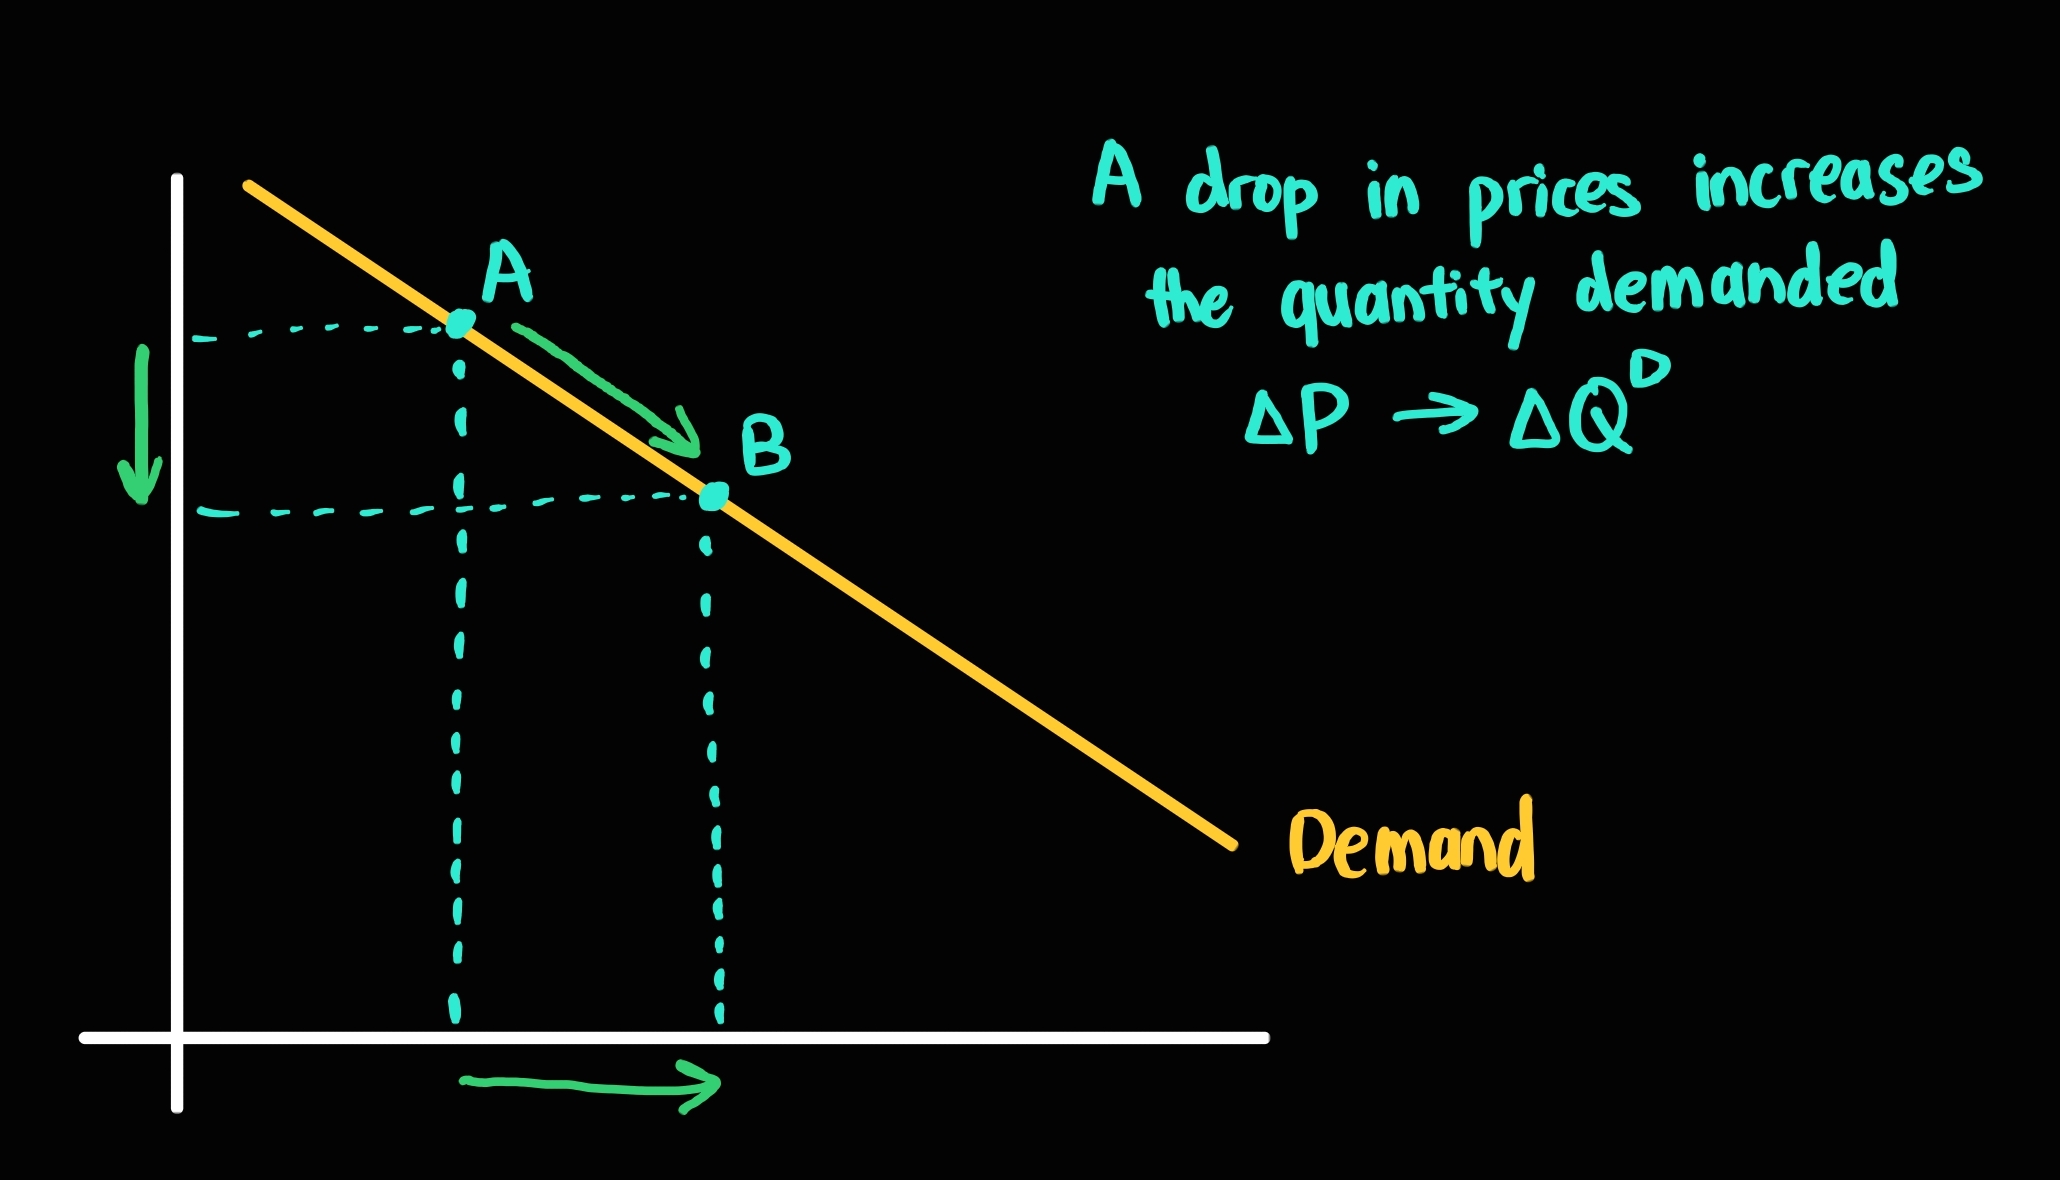 A drop in prices increases
the quantity demanded
ΔP → ΔQᴰ
A
B
Demand